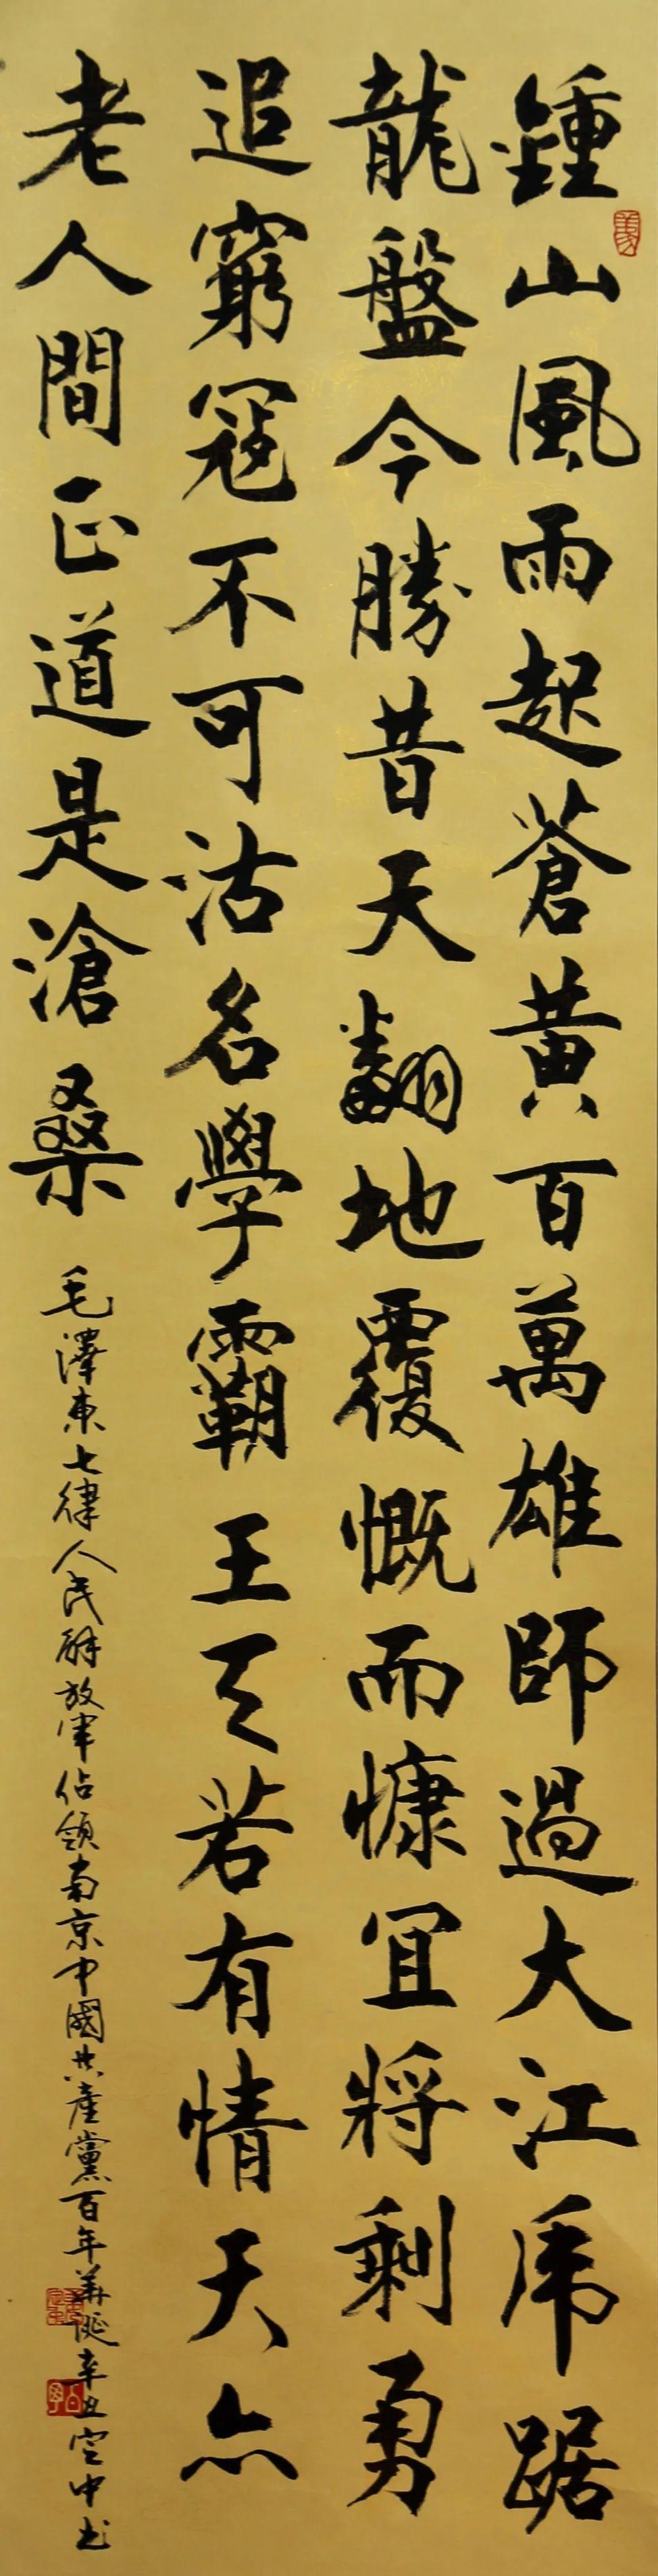 鍾山風雨起蒼黃百萬雄師過大江虎踞
龍盤今勝昔天翻地覆慨而慷宜將剩勇
追窮寇不可沽名學霸王天若有情天亦
老人間正道是滄桑
毛澤東七律人民解放軍佔領南京中國共產黨百年華誕辛丑空中书